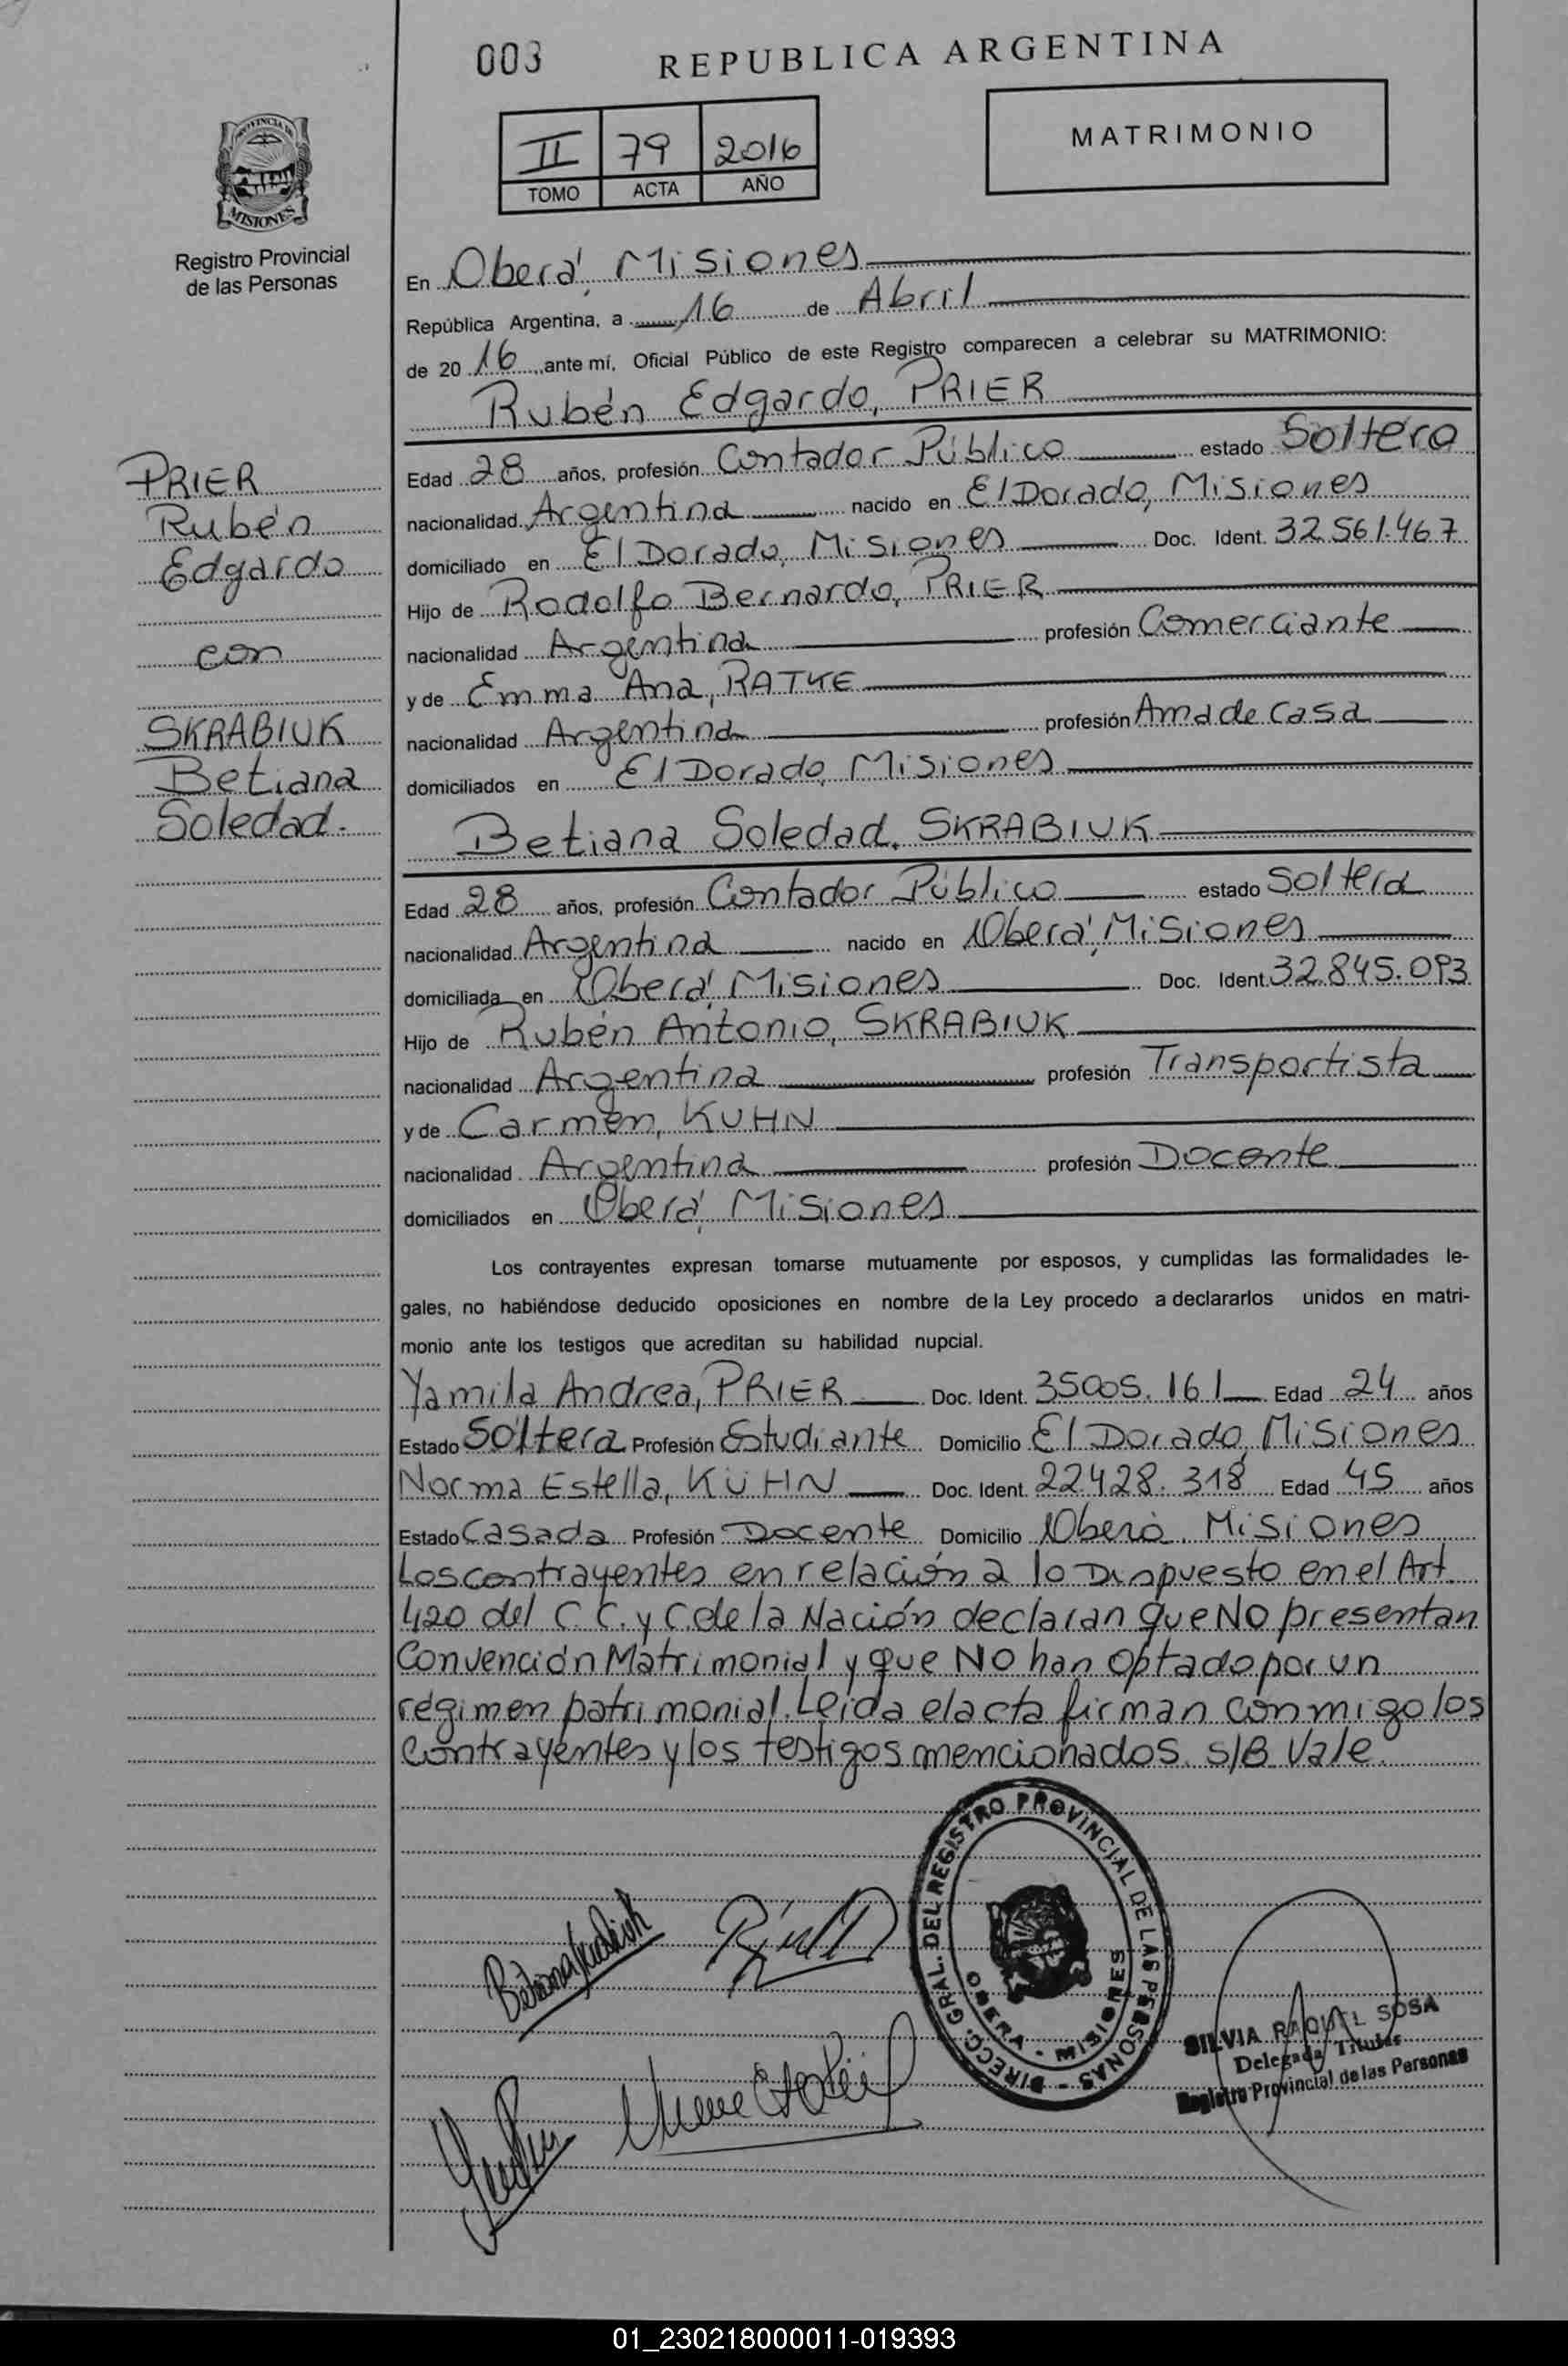 003
REPUBLICA ARGENTINA
II 79 2016
TOMO ACTA AÑO
MATRIMONIO
PROVINCIA DE
MISIONES
Registro Provincial
de las Personas
En Oberá, Misiones
República Argentina, a 16 de Abril
de 2016, ante mí, Oficial Público de este Registro comparecen a celebrar su MATRIMONIO:
Rubén Edgardo, PRIER
Edad 28 años, profesión Contador Público estado Soltero
nacionalidad Argentina nacido en El Dorado, Misiones
domiciliado en El Dorado, Misiones Doc. Ident. 32.561.467
Hijo de Rodolfo Bernardo, PRIER
nacionalidad Argentina profesión Comerciante
y de Emma Ana, RATKE
nacionalidad Argentina profesión Ama de casa
domiciliados en El Dorado, Misiones
PRIER
Rubén
Edgardo
con
SKRABIUK
Betiana
Soledad.
Betiana Soledad, SKRABIUK
Edad 28 años, profesión Contador Público estado Soltera
nacionalidad Argentina nacido en Oberá, Misiones
domiciliada en Oberá, Misiones Doc. Ident. 32.845.093
Hijo de Rubén Antonio, SKRABIUK
nacionalidad Argentina profesión Transportista
y de Carmen, KUHN
nacionalidad Argentina profesión Docente
domiciliados en Oberá, Misiones
Los contrayentes expresan tomarse mutuamente por esposos, y cumplidas las formalidades le-
gales, no habiéndose deducido oposiciones en nombre de la Ley procedo a declararlos unidos en matri-
monio ante los testigos que acreditan su habilidad nupcial.
Yamila Andrea, PRIER Doc. Ident. 35005.161 Edad 24 años
Estado Soltera Profesión Estudiante Domicilio El Dorado, Misiones
Norma Estella, KÜHN Doc. Ident. 22.428.318 Edad 45 años
Estado Casada Profesión Docente Domicilio Oberá. Misiones
Los contrayentes en relación a lo Dispuesto en el Art.
420 del C.C. y C. de la Nación declaran que NO presentan
Convención Matrimonial y que NO han optado por un
régimen patrimonial. Leida el acta firman conmigo los
contrayentes y los testigos mencionados. S/B Vale.
DIRECC. GRAL. DEL REGISTRO PROVINCIAL DE LAS PERSONAS -
OBERA - MISIONES
SILVIA RAQUEL SOSA
Delegada Titular
Registro Provincial de las Personas
01_230218000011-019393